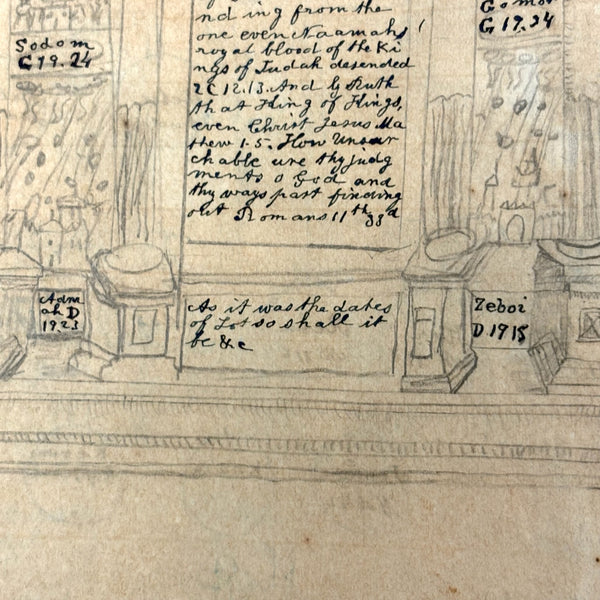 nding from the
one even Naamahs
royal blood of the Ki
ngs of Judah desended
2 C 12.13. And by Ruth
that King of Kings,
even Christ Jesus Ma
thew 1-5. How Unsar
chable are thy judg
ments o God and
thy ways past finding
out Romans 11th 33d
Sodom
G 19.24
Gomor
G 19.24
Adm
ah D
19.23
As it was the dates
of Lot so shall it
be &c
Zeboi
D 1915